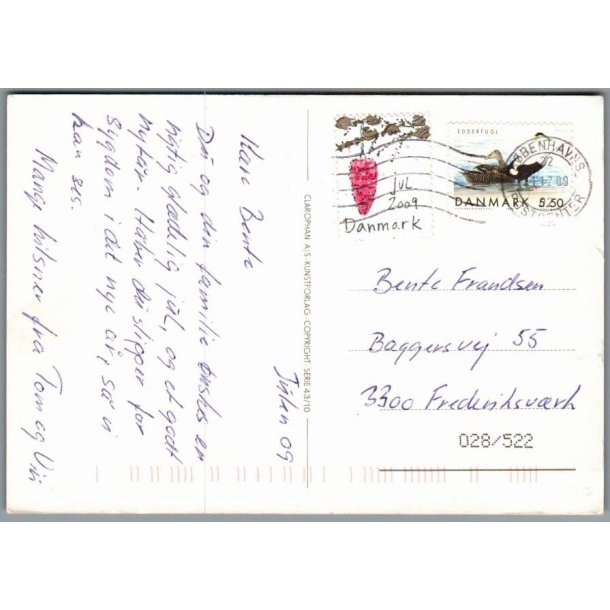 Julen og
Kære Bente
Du og din familie ønskes en
rigtig glædelig jul, og et godt
nytår. Håber du slipper for
sygdom i det nye år, så vi
kan ses.
Mange hilsner fra Tom og Vivi
CLAROPHAN A/S-KUNSTFORLAG COPYRIGHT SERIE 43/10
JUL
2009
Danmark
EDDERFUGL
DANMARK 5.50
KØBENHAVNS
POSTCENTER
Bente Frandsen
Baggersvej 55
3300 Frederiksværk
028/522